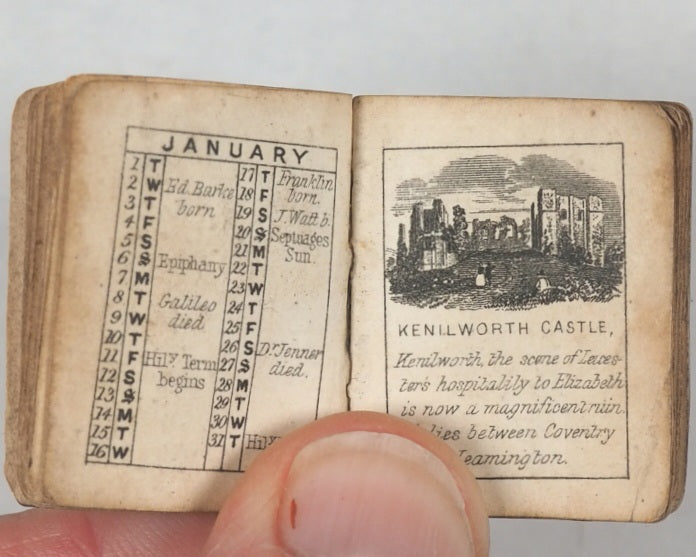 JANUARY
1 T
2 W Ed. Burke
3 T born
4 F
5 S
6 S Epiphany
7 M
8 T Galileo
9 W died
10 T
11 F Hily. Term
12 S begins
13 S
14 M
15 T
16 W
17 T Franklin
18 F born.
19 S J. Watt b.
20 S Septuages
21 M Sun.
22 T
23 W
24 T
25 F
26 S Dr. Jenner
27 S died.
28 M
29 T
30 W
31 T
KENILWORTH CASTLE,
Kenilworth, the scene of Leices-
ter's hospitality to Elizabeth
is now a magnificent ruin.
lies between Coventry
Leamington.